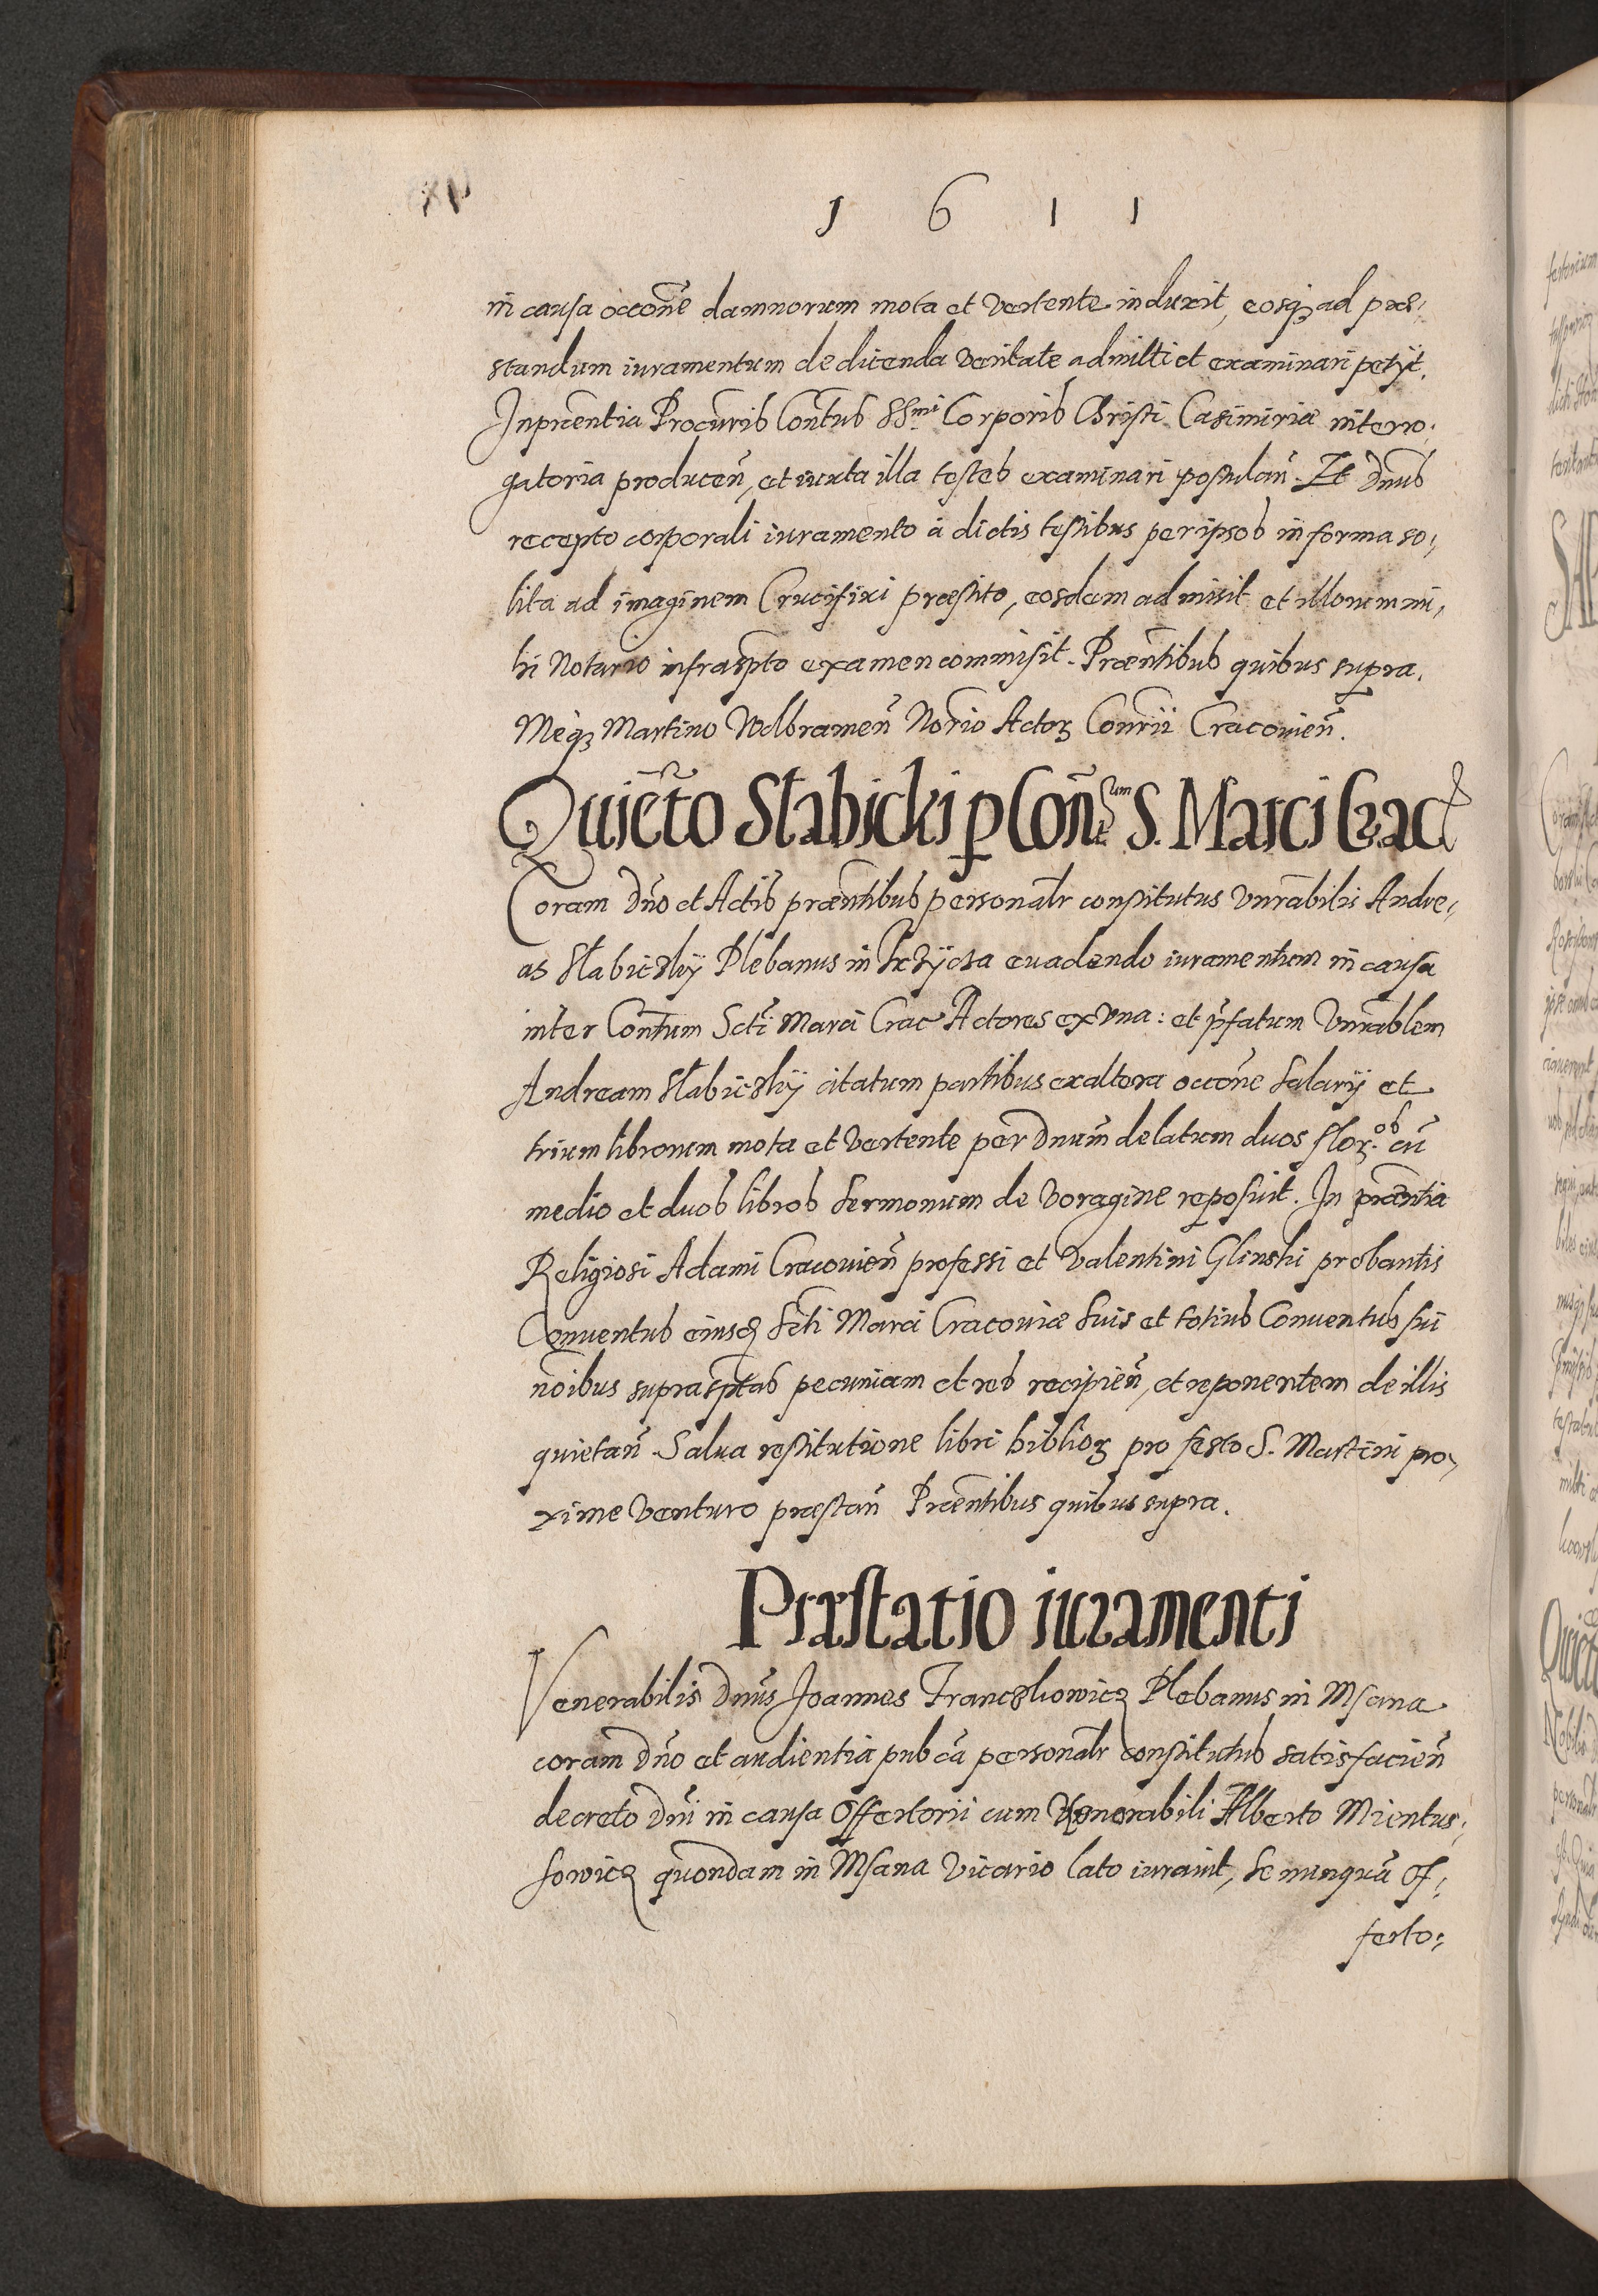 1611
in causa occõne damnorum mota et vertente induxit, eosq₃ ad præ-
standum iuramentum de dicenda veritate admitti et examinari petÿt.
In pñentia Procuris Contus SSmi Corporis Christi Casimiriæ interro-
gatoria producen̄, et iuxta illa testes examinari postulan̄. Et Dnus
recepto corporali iuramento à dictis testibus per ipsos in forma so-
lita ad imaginem Crucifixi præstito, eosdem admisit et illorum mi-
hi Notario infrasp̄to examen commisit. Præntibus quibus supra.
Meq₃ Martino Wolbramen̄ Nor̄io Actoꝝ Conr̄ii Cracovien̄.
Quiet̃o Slabicki p Con̄tum S. Marci Crac
Coram Dn̄o et Actis præntibus personalr constitutus Vn̄rabilis Andre-
as Slabiczkÿ Plebanus in evadendo iuramentum in causa
inter Con̄tum Scti Marci Crac Actores ex vna: et p̄fatum Vn̄rablem
Andream Slabiczkÿ citatum partibus ex altera occõne salarÿ et
trium librorum mota et vertente per Dnum̄ delatum duos floꝝ.os cū
medio et duos libros sermonum de Voragine reposuit. In præntia
Religiosi Adami Cracovien̄ professi et Valentini Glinski probantis
Conventus eiusd Scti Marci Cracoviæ suis et totius Conventus sui
nōibus suprasp̄tas pecuniam et res recipien̄, et reponentem de illis
quietan̄. Salva restitutione libri biblioꝝ pro festo S. Martini pro-
xime venturo præstan̄ Præntibus quibus supra.
Præstatio iuramenti
Venerabilis Dnus Joannes Franczkowicz Plebanus in Msana
coram Dn̄o et audientia pub̄ca personalr constitutus satisfacien̄
decreto Dn̄i in causa Offertorii cum Venerabili Alberto Mientus-
sowicz quondam in Msana Vicario lato iuravit, se nunquā Of-
ferto-